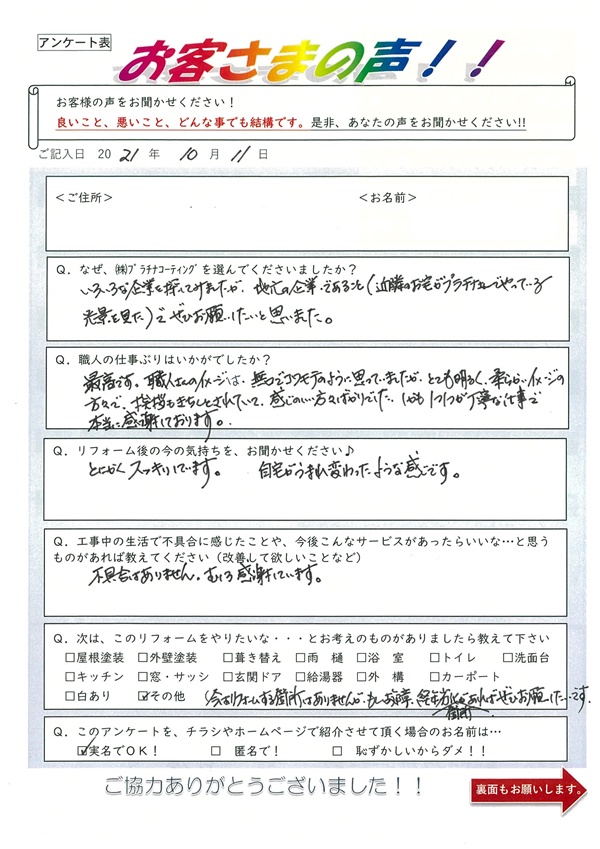 アンケート表
お客さまの声！！
お客様の声をお聞かせください！
良いこと、悪いこと、どんな事でも結構です。是非、あなたの声をお聞かせください!!
ご記入日 2021年 10月 11日
＜ご住所＞ ＜お名前＞
Q．なぜ、㈱ﾌﾟﾗﾁﾅｺｰﾃｨﾝｸﾞを選んでくださいましたか？
いろいろな企業を探してみましたが、地元の企業であること（近隣のお宅がプラチナさんでやっている
光景を見た）で ぜひお願いしたいと思いました。
Q．職人の仕事ぶりはいかがでしたか？
最高です。職人さんのイメージは、無口でコワモテのように思っていましたが、とても明るく、柔らかいイメージの
方々で、挨拶もきちんとされていて、感じのいい方々ばかりでした。しかも1つ1つが丁寧な仕事で
本当に感謝しております。
Q．リフォーム後の今の気持ちを、お聞かせください♪
とにかくスッキリしています。 自宅がうまれ変わったような感じです。
Q．工事中の生活で不具合に感じたことや、今後こんなサービスがあったらいいな…と思う
ものがあれば教えてください（改善して欲しいことなど）
不具合はありません。むしろ感謝しています。
Q．次は、このリフォームをやりたいな・・・とお考えのものがありましたら教えて下さい
□屋根塗装 □外壁塗装 □葺き替え □雨 樋 □浴 室 □トイレ □洗面台
□キッチン □窓・サッシ □玄関ドア □給湯器 □外 構 □カーポート
□白あり ☑その他 （今はリフォームする箇所はありませんが、もし故障、経年劣化 であればぜひお願いしたいです
箇所
Q．このアンケートを、チラシやホームページで紹介させて頂く場合のお名前は…
☑実名でOK！ □ 匿名で！ □ 恥ずかしいからダメ！！
ご協力ありがとうございました！！
裏面もお願いします。